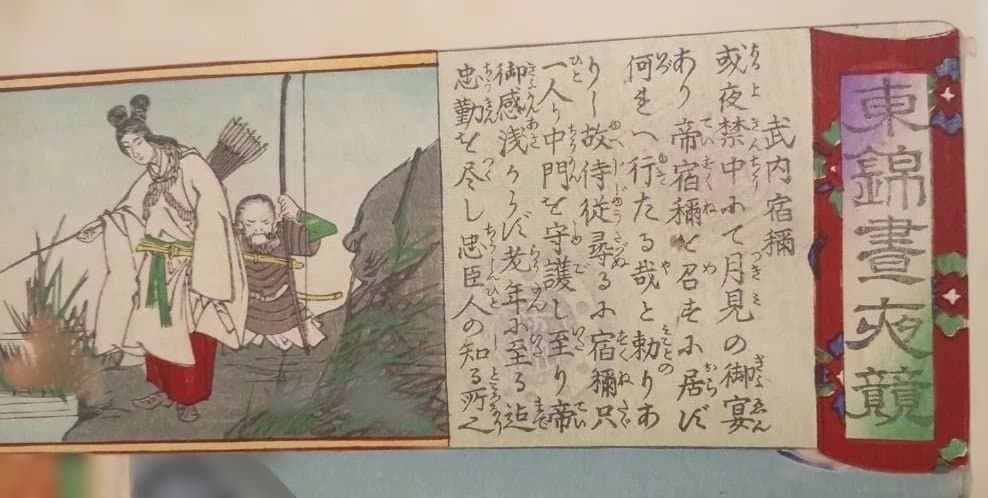 東錦晝夜競
武内宿禰
或夜禁中にて月見の御宴
あり帝宿禰を召すに居ず
何れへ行たる哉と勅りあ
りし故侍従尋るに宿禰只
一人り中門を守護し至り帝
御感浅からず老年に至る迠
忠勤を尽し忠臣人の知る所也